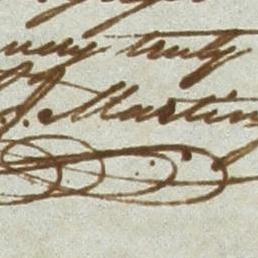 very truly
J. Martin